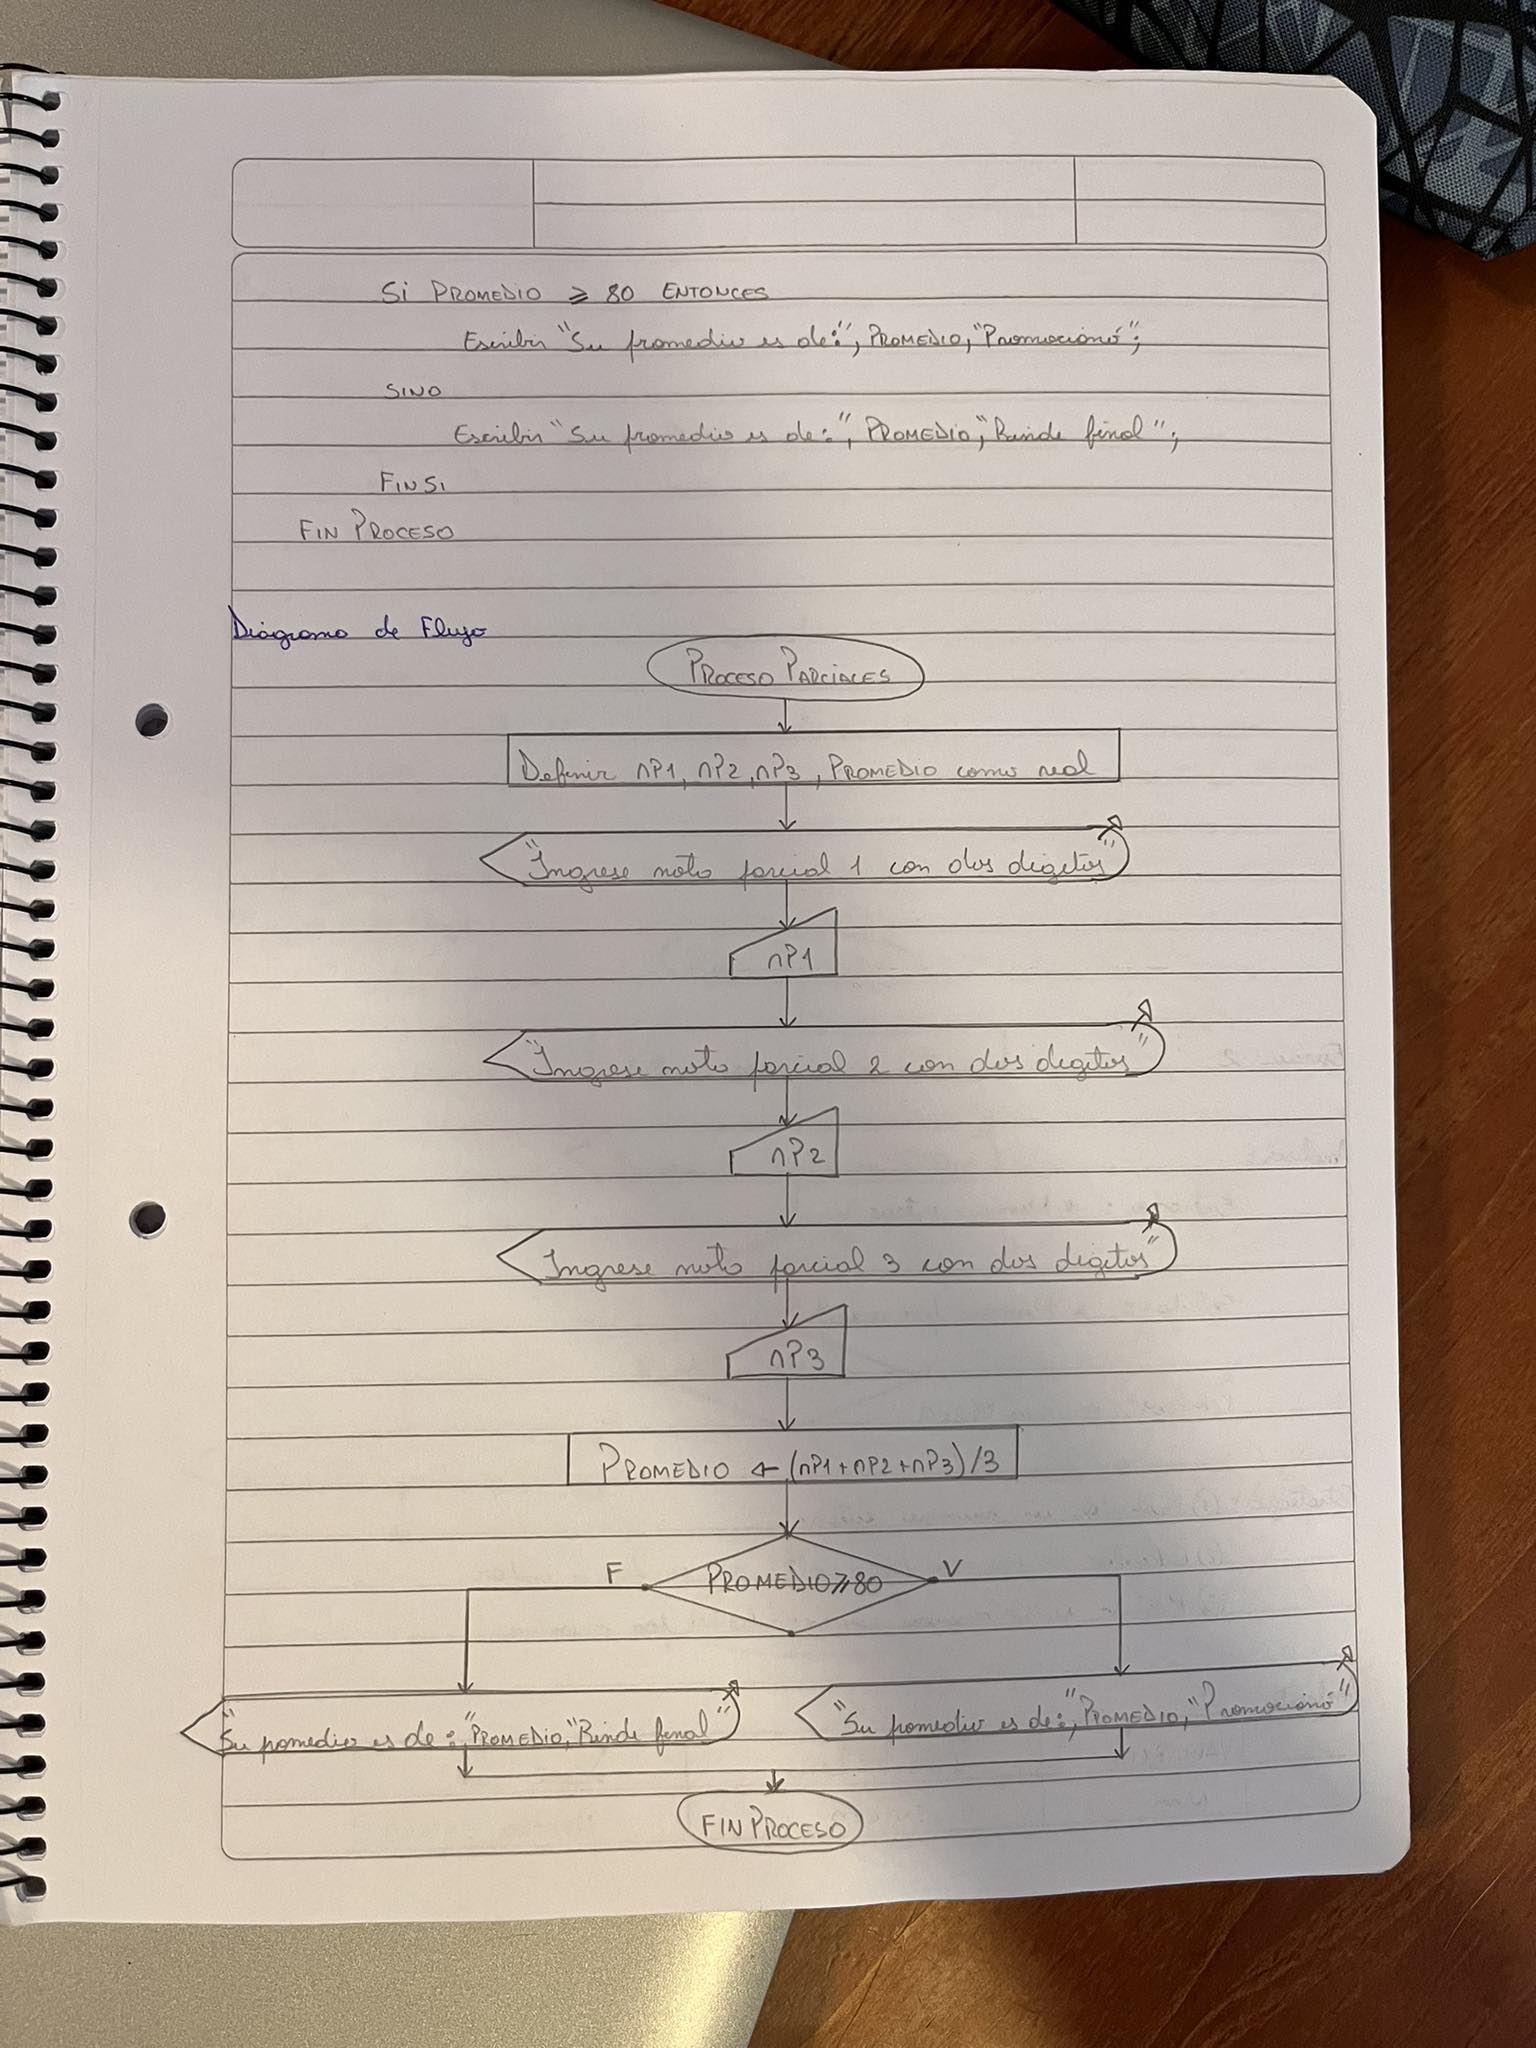 Si PROMEDIO ⩾ 80 ENTONCES
Escribir "Su promedio es de:", PROMEDIO, "Promocionó";
SINO
Escribir "Su promedio es de:", PROMEDIO, "Rinde final";
FINSI
FIN PROCESO
Diagrama de Flujo
PROCESO PARCIALES
Definir nP1, nP2, nP3, PROMEDIO como real
"Ingrese nota parcial 1 con dos digitos"
nP1
"Ingrese nota parcial 2 con dos digitos"
nP2
"Ingrese nota parcial 3 con dos digitos"
nP3
PROMEDIO ← (nP1+nP2+nP3)/3
F PROMEDIO⩾80 V
"Su pomedio es de:", PROMEDIO, "Rinde final"
"Su pomedio es de:", PROMEDIO, "Promocionó"
FIN PROCESO